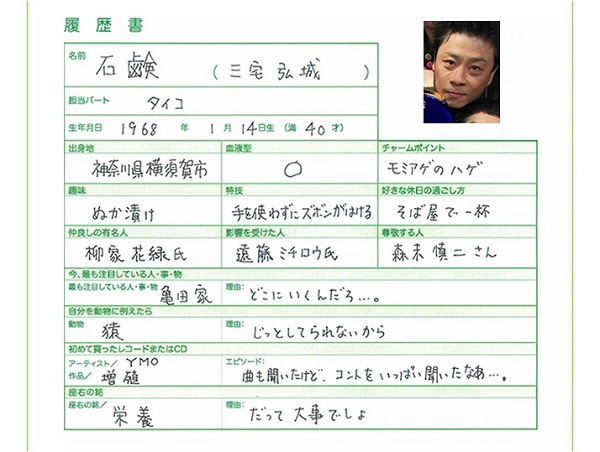 履歴書
名前 石鹸 ( 三宅 弘城 )
担当パート タイコ
生年月日 1968 年 1 月 14 日生 (満 40 才)
出身地 血液型 チャームポイント
神奈川県横須賀市 O モミアゲのハゲ
趣味 特技 好きな休日の過ごし方
ぬか漬け 手を使わずにズボンがはける そば屋で一杯
仲良しの有名人 影響を受けた人 尊敬する人
柳家 花緑氏 遠藤ミチロウ氏 森末 慎二さん
今、最も注目している人・事・物
最も注目している人・事・物 亀田家 理由: どこにいくんだろ…。
自分を動物に例えたら
動物 猿 理由: じっとしてられないから
初めて買ったレコードまたはCD
アーティスト/ YMO エピソード:
作品/ 増殖 曲も聞いたけど、コントをいっぱい聞いたなあ…。
座右の銘
座右の銘/ 栄養 理由: だって 大事でしょ